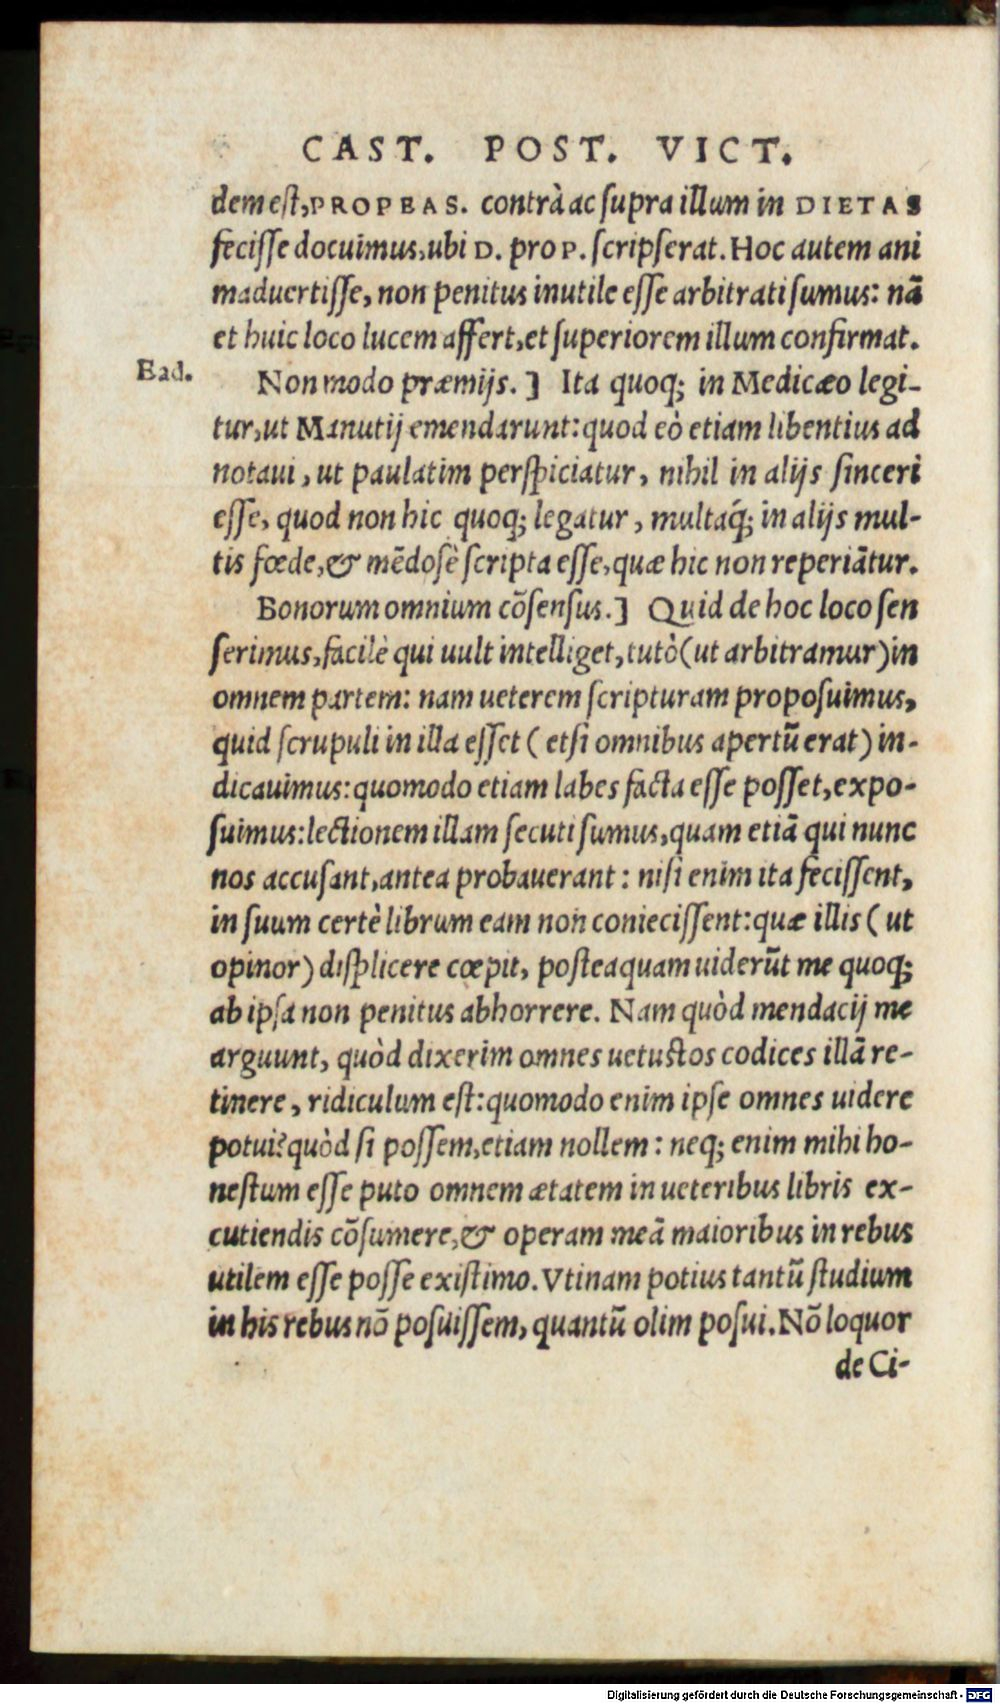 CAST. POST. VICT.
dem est, PROPEAS. contrà ac supra illum in DIETAS
fecisse docuimus, ubi D. pro P. scripserat. Hoc autem ani
maduertisse, non penitus inutile esse arbitrati sumus: nã
et huic loco lucem affert, et superiorem illum confirmat.
Ead.
Non modo præmijs.] Ita quoq; in Medicæo legi-
tur, ut Manutij emendarunt: quod eò etiam libentius ad
notaui, ut paulatim perspiciatur, nihil in alijs sinceri
esse, quod non hic quoq; legatur, multaq́; in alijs mul-
tis fœde, & mẽdosè scripta esse, quæ hic non reperiãtur.
Bonorum omnium cõsensus.] Quid de hoc loco sen
serimus, facilè qui uult intelliget, tutò (ut arbitramur) in
omnem partem: nam ueterem scripturam proposuimus,
quid scrupuli in illa esset (etsi omnibus apertũ erat) in-
dicauimus: quomodo etiam labes facta esse posset, expo-
suimus: lectionem illam secuti sumus, quam etiã qui nunc
nos accusant, antea probauerant: nisi enim ita fecissent,
in suum certè librum eam non coniecissent: quæ illis (ut
opinor) displicere cœpit, posteaquam uiderũt me quoq;
ab ipsa non penitus abhorrere. Nam quòd mendacij me
arguunt, quòd dixerim omnes uetustos codices illã re-
tinere, ridiculum est: quomodo enim ipse omnes uidere
potui? quòd si possem, etiam nollem: neq; enim mihi ho-
nestum esse puto omnem ætatem in ueteribus libris ex-
cutiendis cõsumere, & operam meã maioribus in rebus
utilem esse posse existimo. Vtinam potius tantũ studium
in his rebus nõ posuissem, quantũ olim posui. Nõ loquor
de Ci-
Digitalisierung gefördert durch die Deutsche Forschungsgemeinschaft - DFG